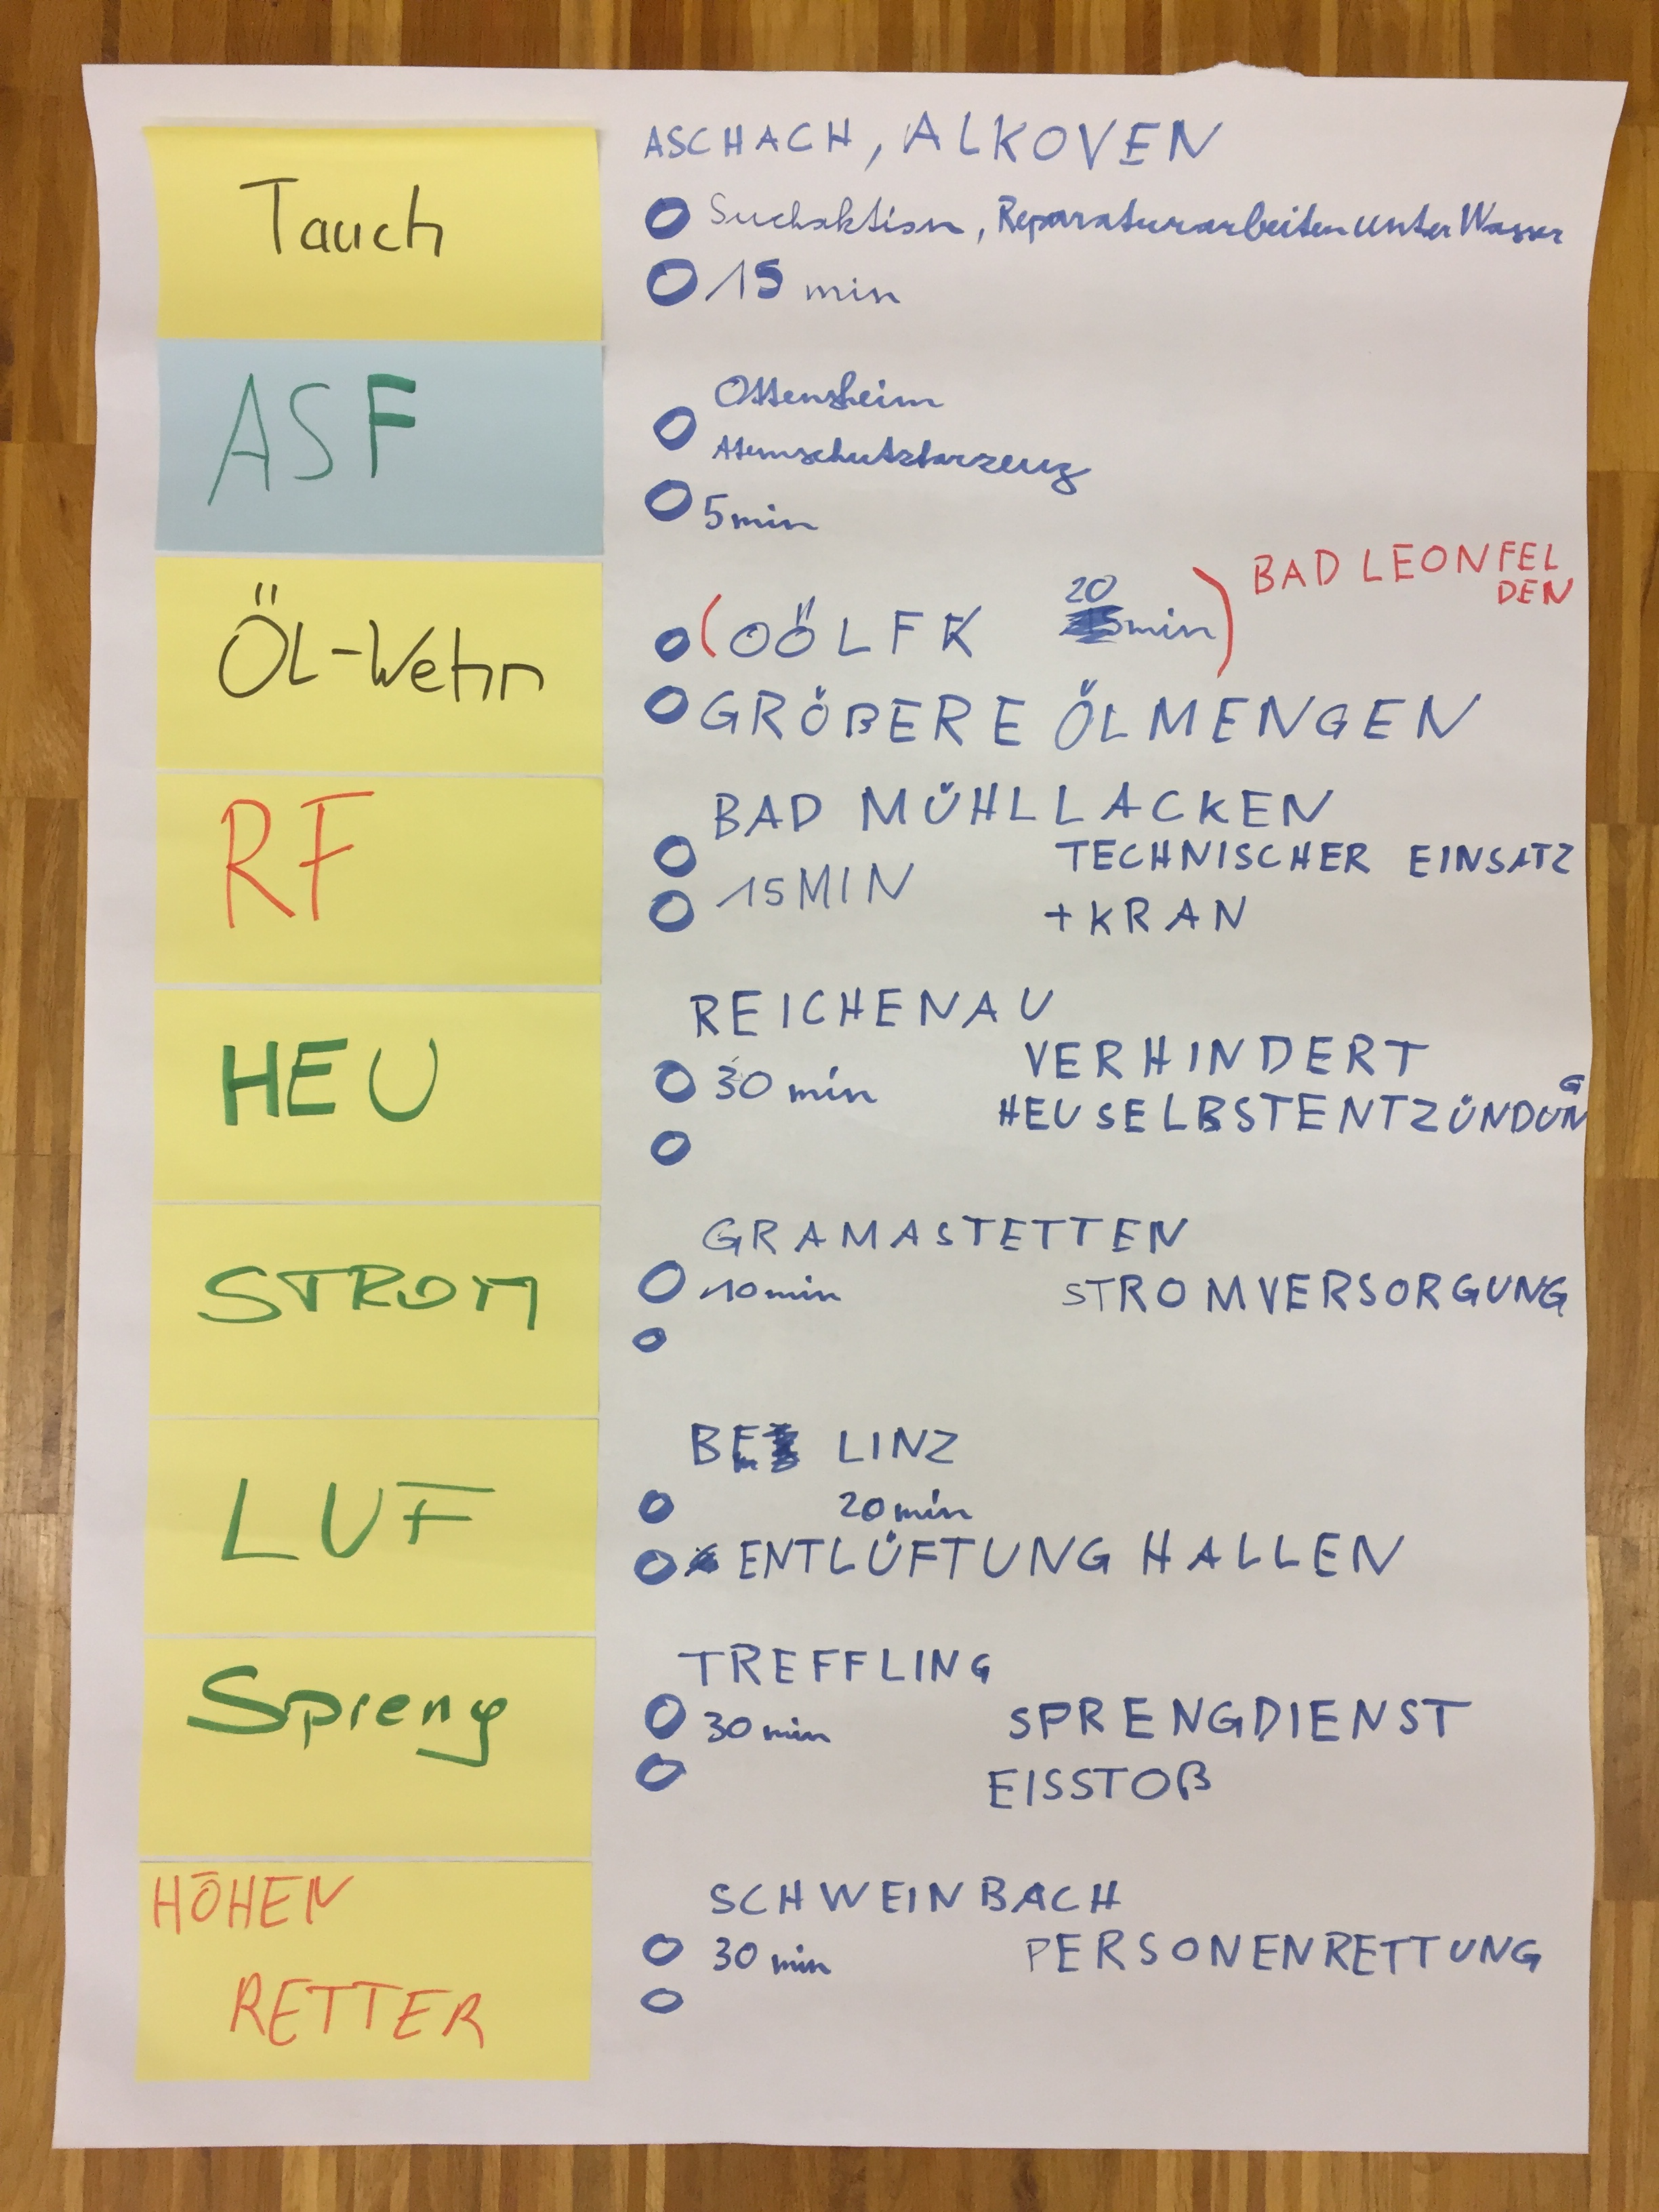 Tauch
ASCHACH, ALKOVEN
Suchaktion, Reparaturarbeiten unter Wasser
15 min
ASF
Ottensheim
Atemschutzfarzeug
5min
ÖL-Wehr
(OÖLFK 20 min) BAD LEONFEL
DEN
GRÖßERE ÖLMENGEN
RF
BAD MÜHLLACKEN
TECHNISCHER EINSATZ
15MIN
+ KRAN
HEU
REICHENAU
30 min
VERHINDERT
HEUSELBSTENTZÜNDUNG
STROM
GRAMASTETTEN
10min STROMVERSORGUNG
LUF
LINZ
20min
ENTLÜFTUNG HALLEN
Spreng
TREFFLING
30 min SPRENGDIENST
EISSTOß
HÖHEN
RETTER
SCHWEINBACH
30 min PERSONENRETTUNG